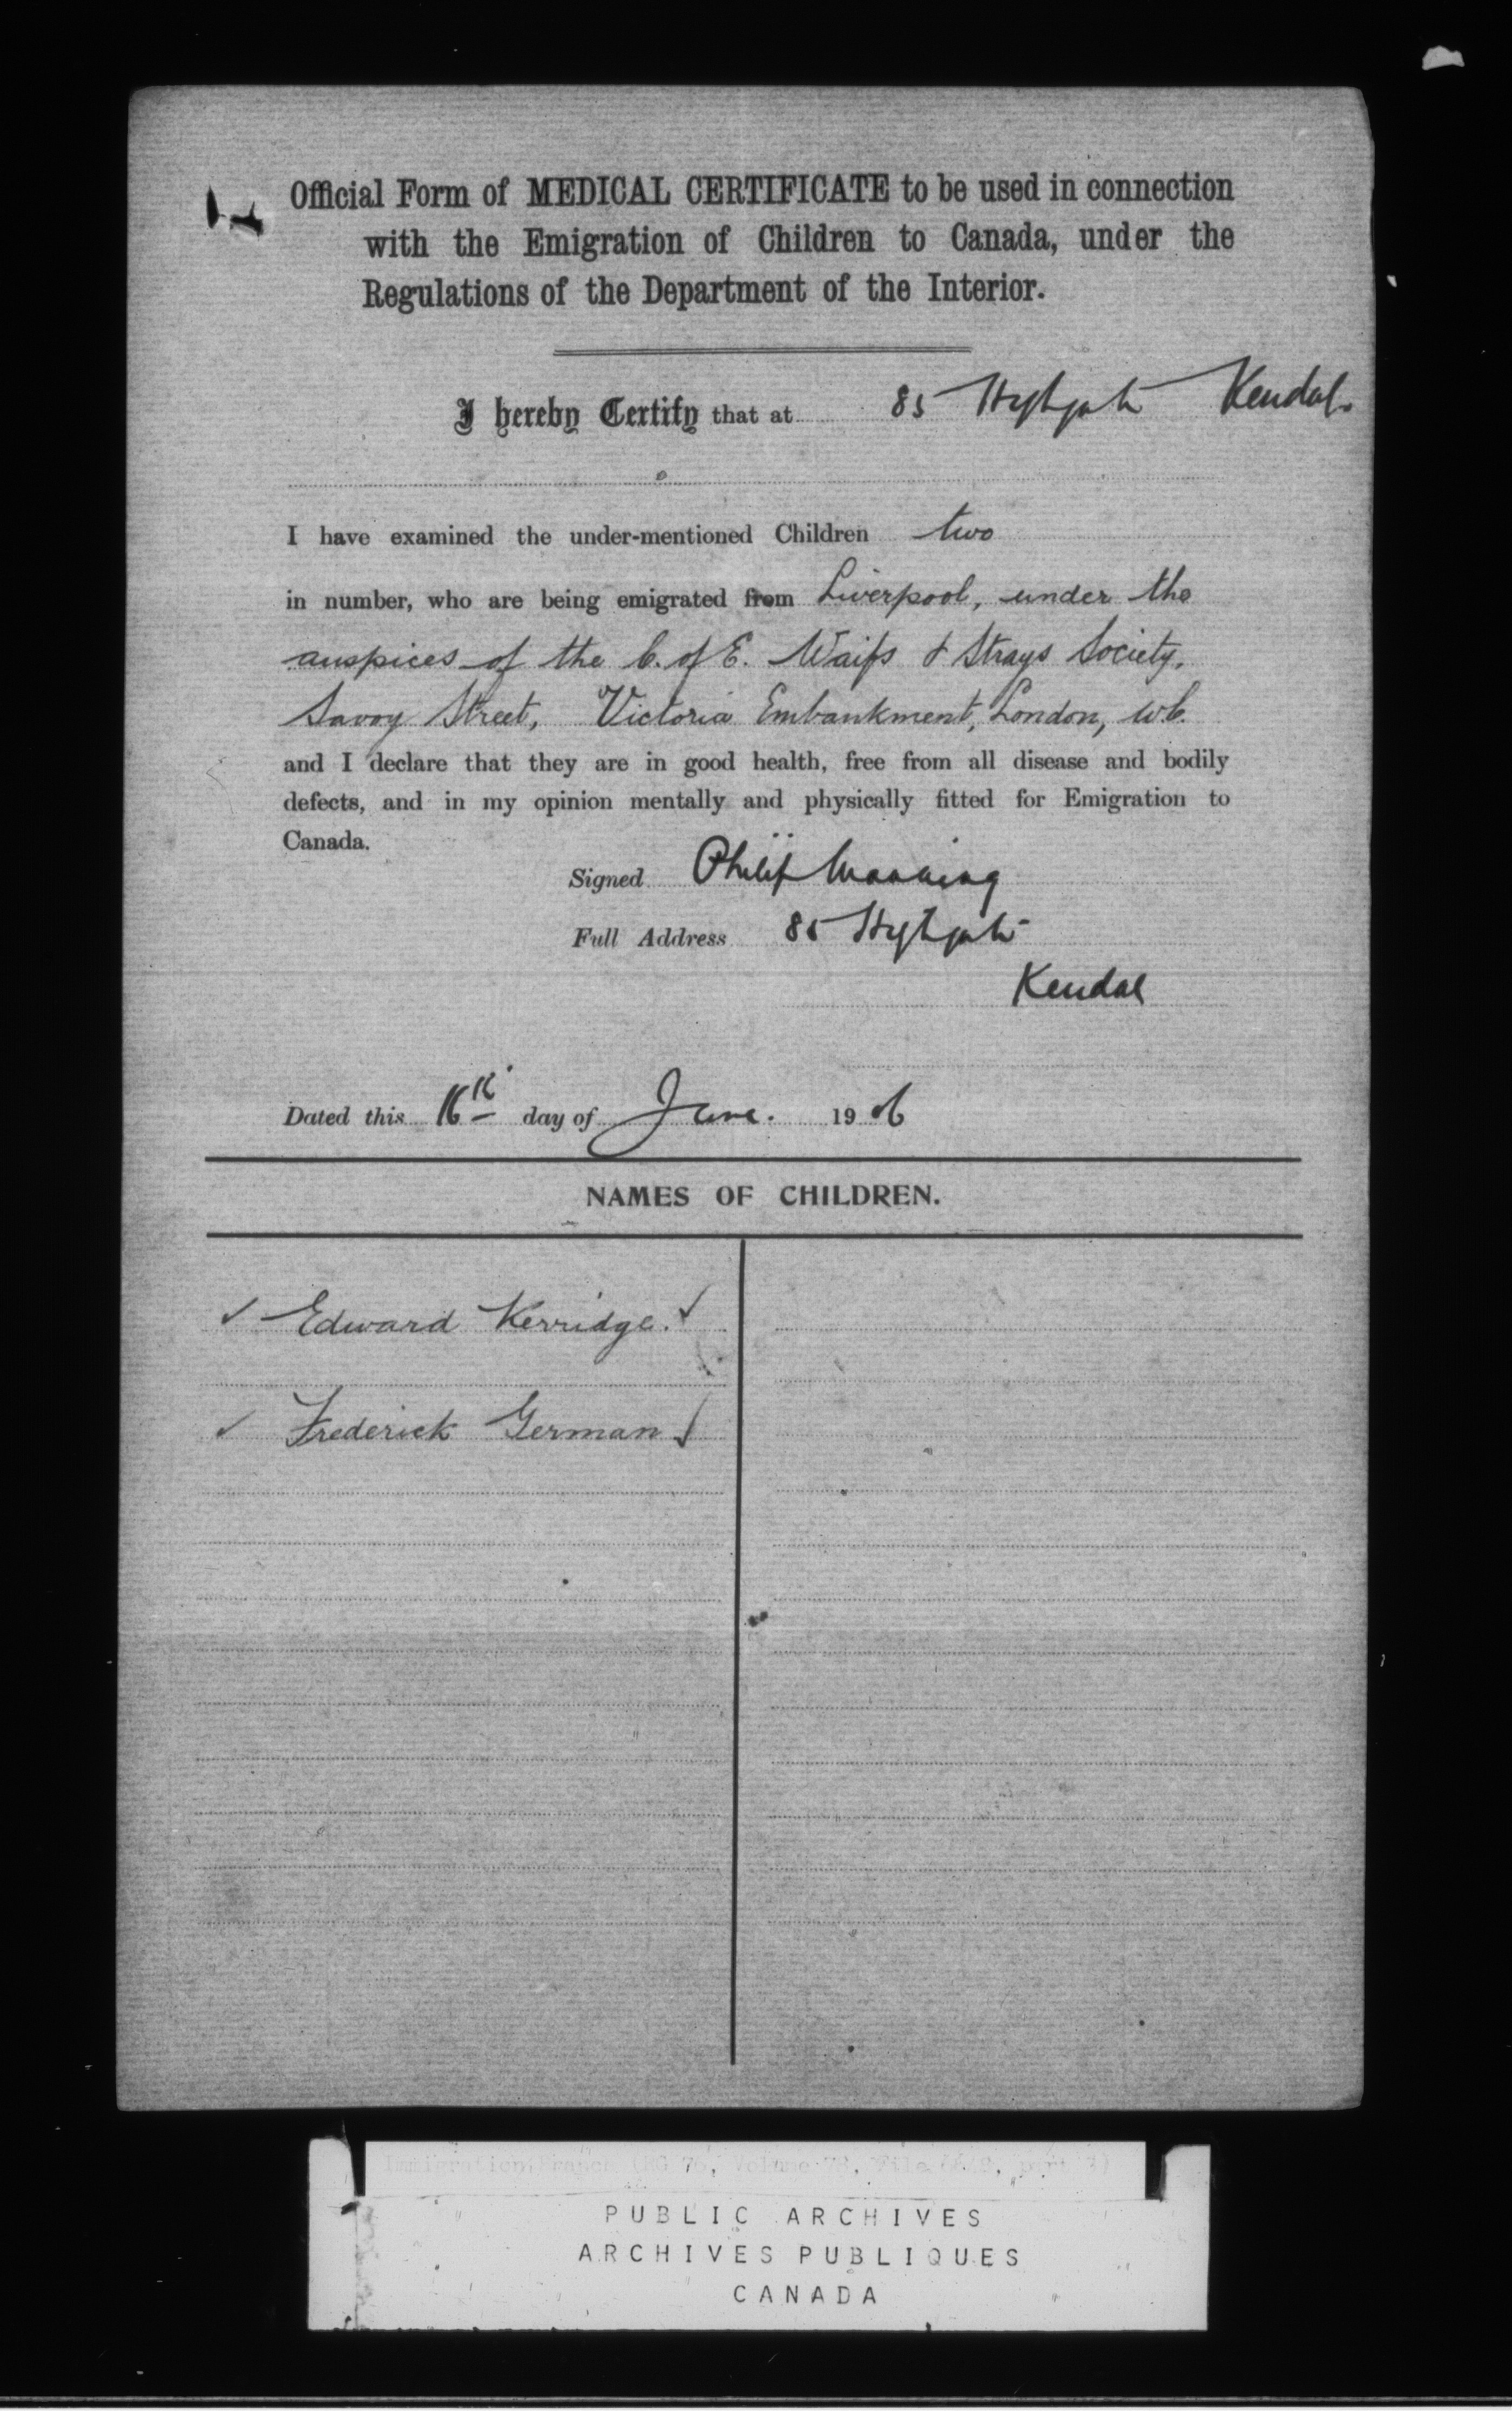 Official Form of MEDICAL CERTIFICATE to be used in connection
with the Emigration of Children to Canada, under the
Regulations of the Department of the Interior.
I hereby Certify that at 85 Highgate Kendal.
I have examined the under-mentioned Children two
in number, who are being emigrated from Liverpool, under the
auspices of the C. of E. Waifs & Strays Society,
Savoy Street, Victoria Embankment, London, W.C.
and I declare that they are in good health, free from all disease and bodily
defects, and in my opinion mentally and physically fitted for Emigration to
Canada.
Signed Philip
Full Address 85 Highgate
Kendal
Dated this 16th day of June. 1906
NAMES OF CHILDREN.
✓ Edward Kerridge. ✓
✓ Frederick German ✓
Immigration Branch (RG 76, Volume
PUBLIC ARCHIVES
ARCHIVES PUBLIQUES
CANADA